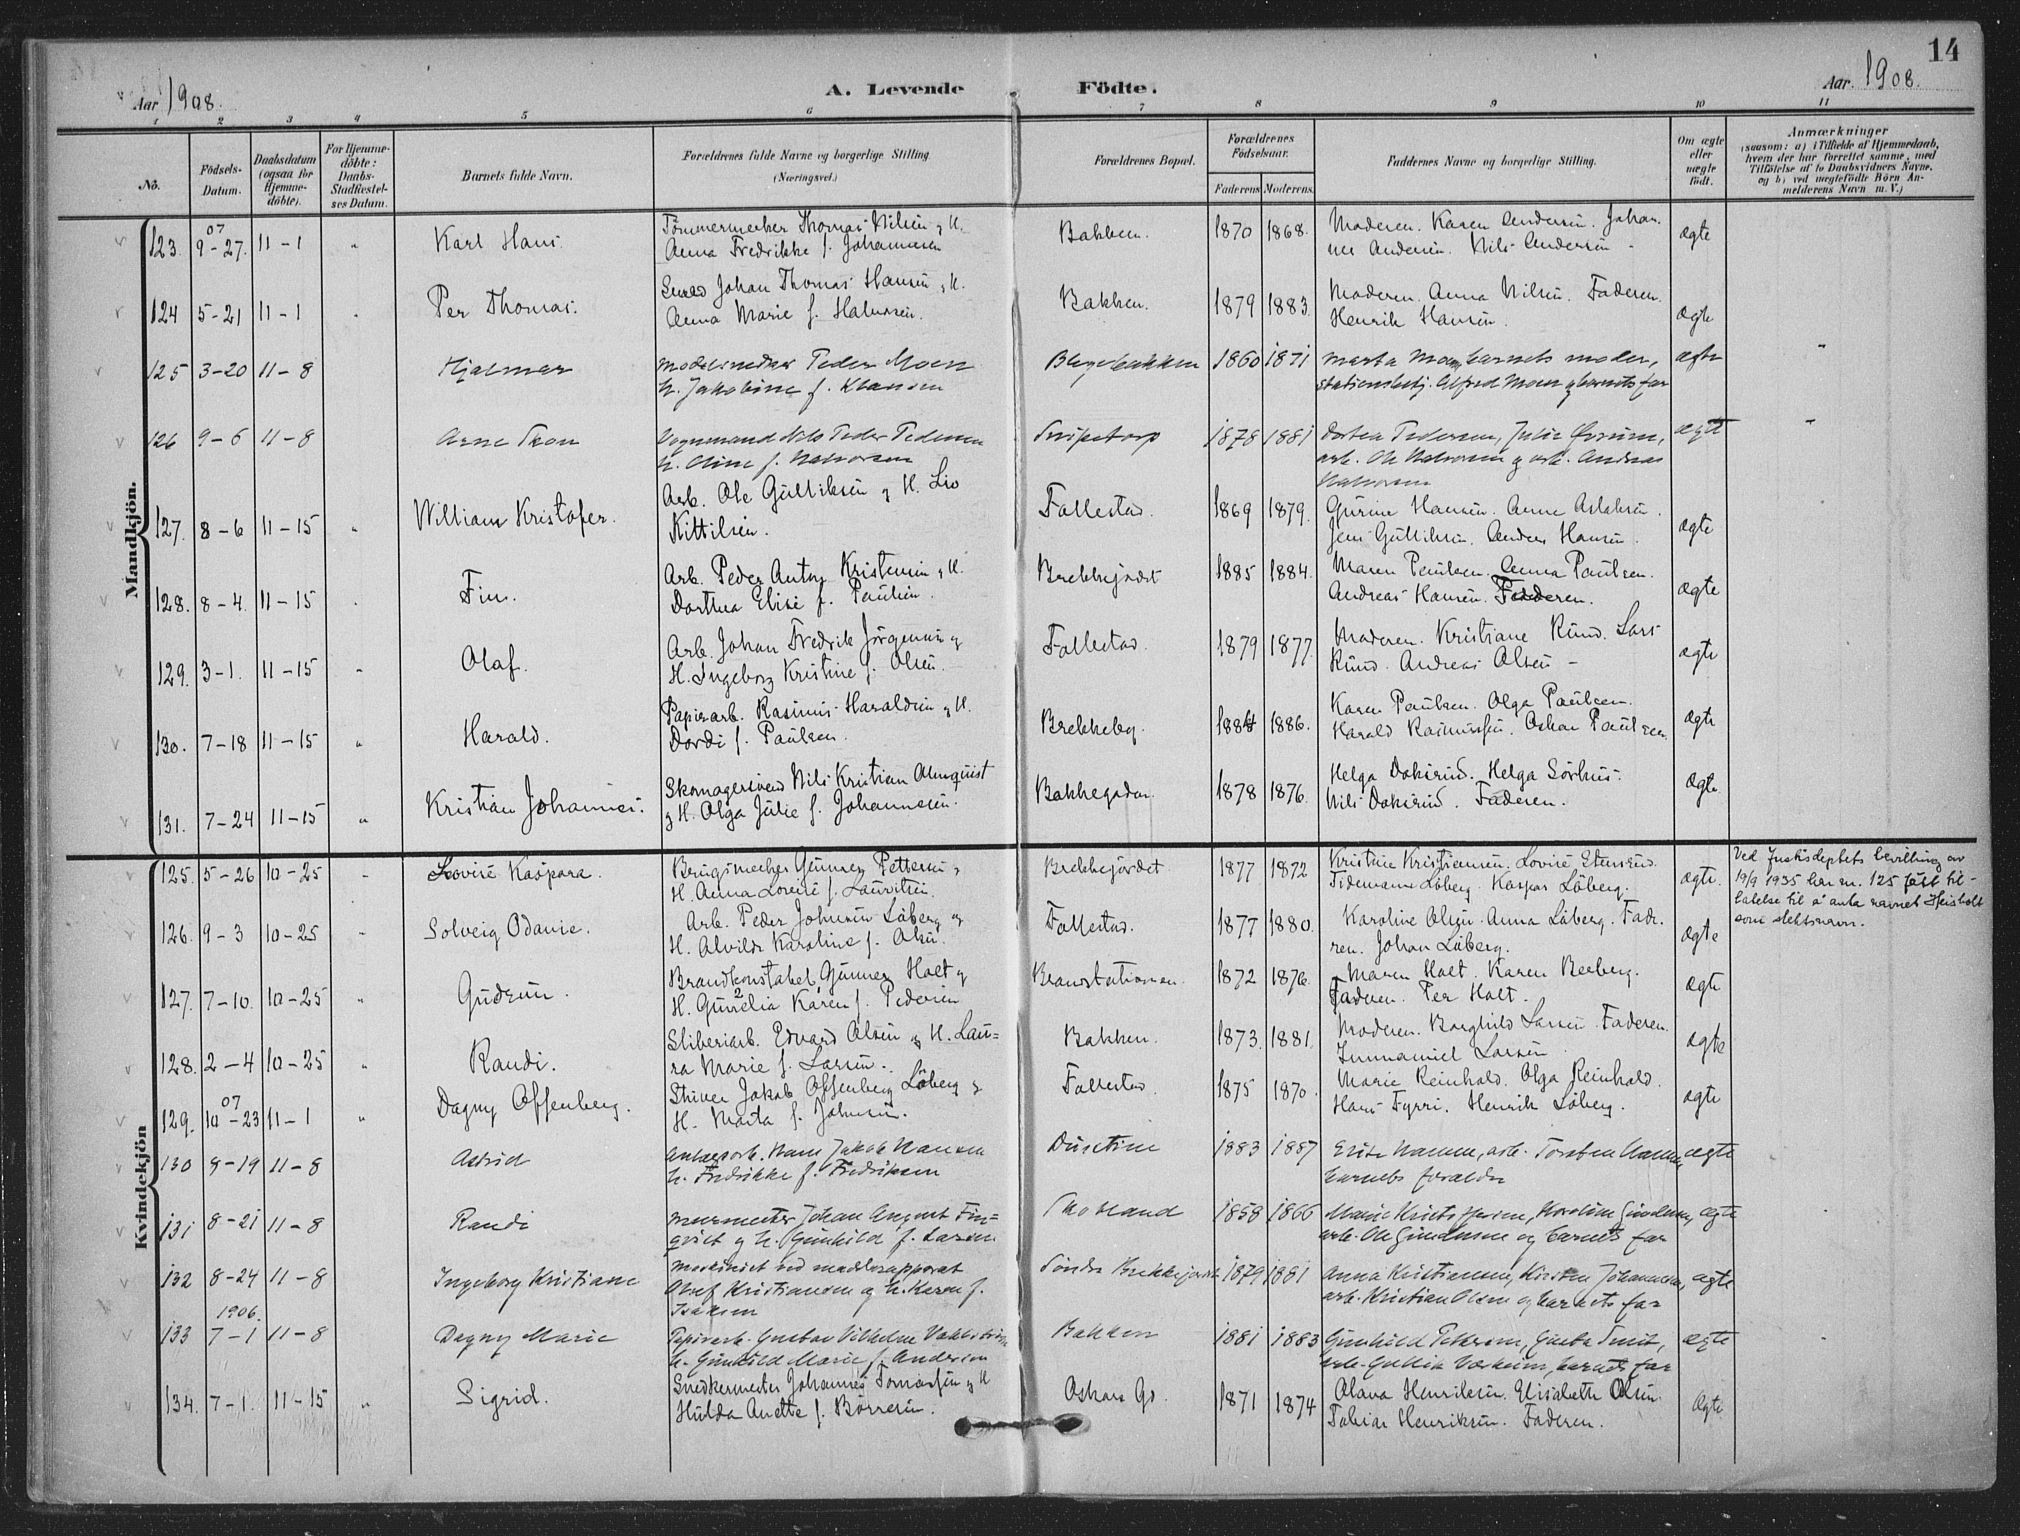 14
Aar 1908.
A. Levende
Födte.
Aar. 1908.
1 2 3 4 5 6 7 8 9 10 11
No.
Födsels-
Datum.
Daabsdatum
(ogsaa for
Hjemme-
döbte).
For Hjemme-
döbte:
Daabs-
Stadfæstel-
ses Datum.
Barnets fulde Navn.
Forældrenes fulde Navne og borgerlige Stilling
(Næringsvei.)
Forældrenes Bopæl.
Forældrenes
Födselsaar.
Faderens Moderens
Faddernes Navne og borgerlige Stilling.
Om ægte
eller
uægte
födt.
Anmærkninger
(saasom: a) i Tilfælde af Hjemmedaab,
hvem der har forrettet samme, med
Tilföielse af to Daabsvidners Navne,
og b) ved uægtefödte Börn An-
melderens Navn m. V.)
Mandkjön.
123. 07 9-27. 11-1 " Karl Hans. Tömmermerker Thomas Nilsen og H.
Anna Fredrikke f. Johannesen Bakken. 1870 1868. Moderen. Karen Andersen. Johan-
nes Andersen. Nils Andersen - ægte
124 5-21 11-1 Per Thomas. Johan Thomas Hansen og H.
Anna Marie f. Halvorsen. Bakken. 1879 1883. Moderen. Anna Nilsen. Faderen.
Henrik Hansen. ægte
125 3-20 11-8 Hjalmar Modelsnedker Peder Moen
H. Jakobine f. Klausen Blegebakken 1860 1871 Marta Moen, barnets moder,
stationsbetj. Alfred Moen og barnets far ægte "
126 9-6 11-8 Arne Skon Vognmand Nils Peder Pedersen
H. Aline f. Halvorsen Snipetorp 1878 1881 Dortea Pedersen, Julie
arb. Ole Halvorsen og arb. Andreas
Halvorsen ægte "
127. 8-6 11-15 " William Kristofer. Arb. Ole Gulliksen og H. Liv
Kittilsen. Follestad. 1869 1879. Gurine Hansen. Anne Aslaksen.
Jens Gulliksen. Anders Hansen. ægte
128. 8-4. 11-15 Fin. Arb. Peder Anton Kristensen og H.
Dorthea Elise f. Paulsen. Brekkejordet 1885 1884. Maren Paulsen. Anna Paulsen.
Andreas Hansen. Faderen. ægte
129. 3-1. 11-15 " Olaf. Arb. Johan Fredrik Jörgensen og
H. Ingeborg Kristine f. Olsen. Follestad. 1879 1877. Moderen. Kristiane Rund. Lars
Rund. Andreas Olsen - ægte
130. 7-18 11-15 " Harald. Papirarb. Rasmus Haraldsen og H.
Dordi f. Paulsen. Brekkeby. 1884 1886. Karen Paulsen. Olga Paulsen.
Harald Rasmussen. Oskar Paulsen. ægte
131. 7-24 11-15 " Kristian Johannes. Skomagersvend Nils Kristian Almquist
og H. Olga Julie f. Johannesen. Bakkegaden. 1878 1876. Helga Doksrud. Helga Sörhus.
Nils Doksrud. Faderen. ægte.
Kvindekjön
125. 5-26 10-25 Lovise Kaspara. Brugsmerker Gunner Pettersen og
H. Anna Lovise f. Lauritsen. Brekkejordet. 1877 1872 Kristine Kristiansen. Lovise Stensrud.
Tidemann Löberg. Kaspar Löberg. ægte. Ved Justisdeptets bevilling av
19/9 1935 har nr. 125 fått til-
latelse til å anta navnet Heisholt
som slektsnavn.
126. 9-3 10-25 " Solveig Odanie. Arb. Peder Johnsen Löberg og
H. Alvilde Karoline f. Olsen. Follestad. 1877 1880. Karoline Olsen. Anna Löberg. Fade-
ren. Johan Löberg. ægte
127. 7-10. 10-25 " Gudrun. Brandkonstabel Gunner Holt og
H. Gunelia Karen f. Pedersen Brandstationen. 1872 1876. Maren Holt. Karen Beeberg.
Faderen. Per Holt. ægte
128. 2-4 10-25 " Randi. Sliberiarb. Edvard Olsen og H. Lau-
ra Marie f. Larsen. Bakken. 1873. 1881. Moderen. Borghild Larsen. Faderen.
Immanuel Larsen ægte
129. 07 10-23 11-1 " Dagny Offenberg. Skriver Jakob Offenberg Löberg og
H. Marta f. Johnsen. Follestad 1875 1870. Marie Reinhold. Olga Reinhold.
Hans Fyrri. Henrik Löberg. ægte
130 9-19 11-8 Astrid Anlægsarb. Hans Jakob Hansen
H. Fredrikke f. Fredriksen 1883 1887 Elise Hansen, arb. Torsten Hansen,
barnets foraldre ægte
131 8-21 11-8 Randi Murmester Johan August Fin-
qvist og H. Gunhild f. Larsen 1858 1866 Marie Kristoffersen, Karoline Gundersen,
arb. Ole Gundersen og barnets far ægte
132 8-24 11-8 Ingeborg Kristiane Maskinist ved mudderapparat
Olaf Kristiansen og H. Karen f.
Isaksen Söndre Brekkejordet 1879 1881 Anna Kristiansen, Kirsten Johannesen,
arb. Kristian Olsen og barnets far ægte
133 1906. 7-1 11-8 Dagny Marie Papirarb. Gustav Vilhelm
H. Gunhild Marie f. Andersen Bakken 1881 1883 Gunhild Pettersen,
arb. barnets far ægte
134. 7-1. 11-15 " Sigrid. Snedkermester Johannes Tomassen og H
Hulda Anette f. Börresen. Oskars Gd. 1871 1874 Olava Henriksen. Elisabeth Olsen.
Tobias Henriksen. Faderen. ægte